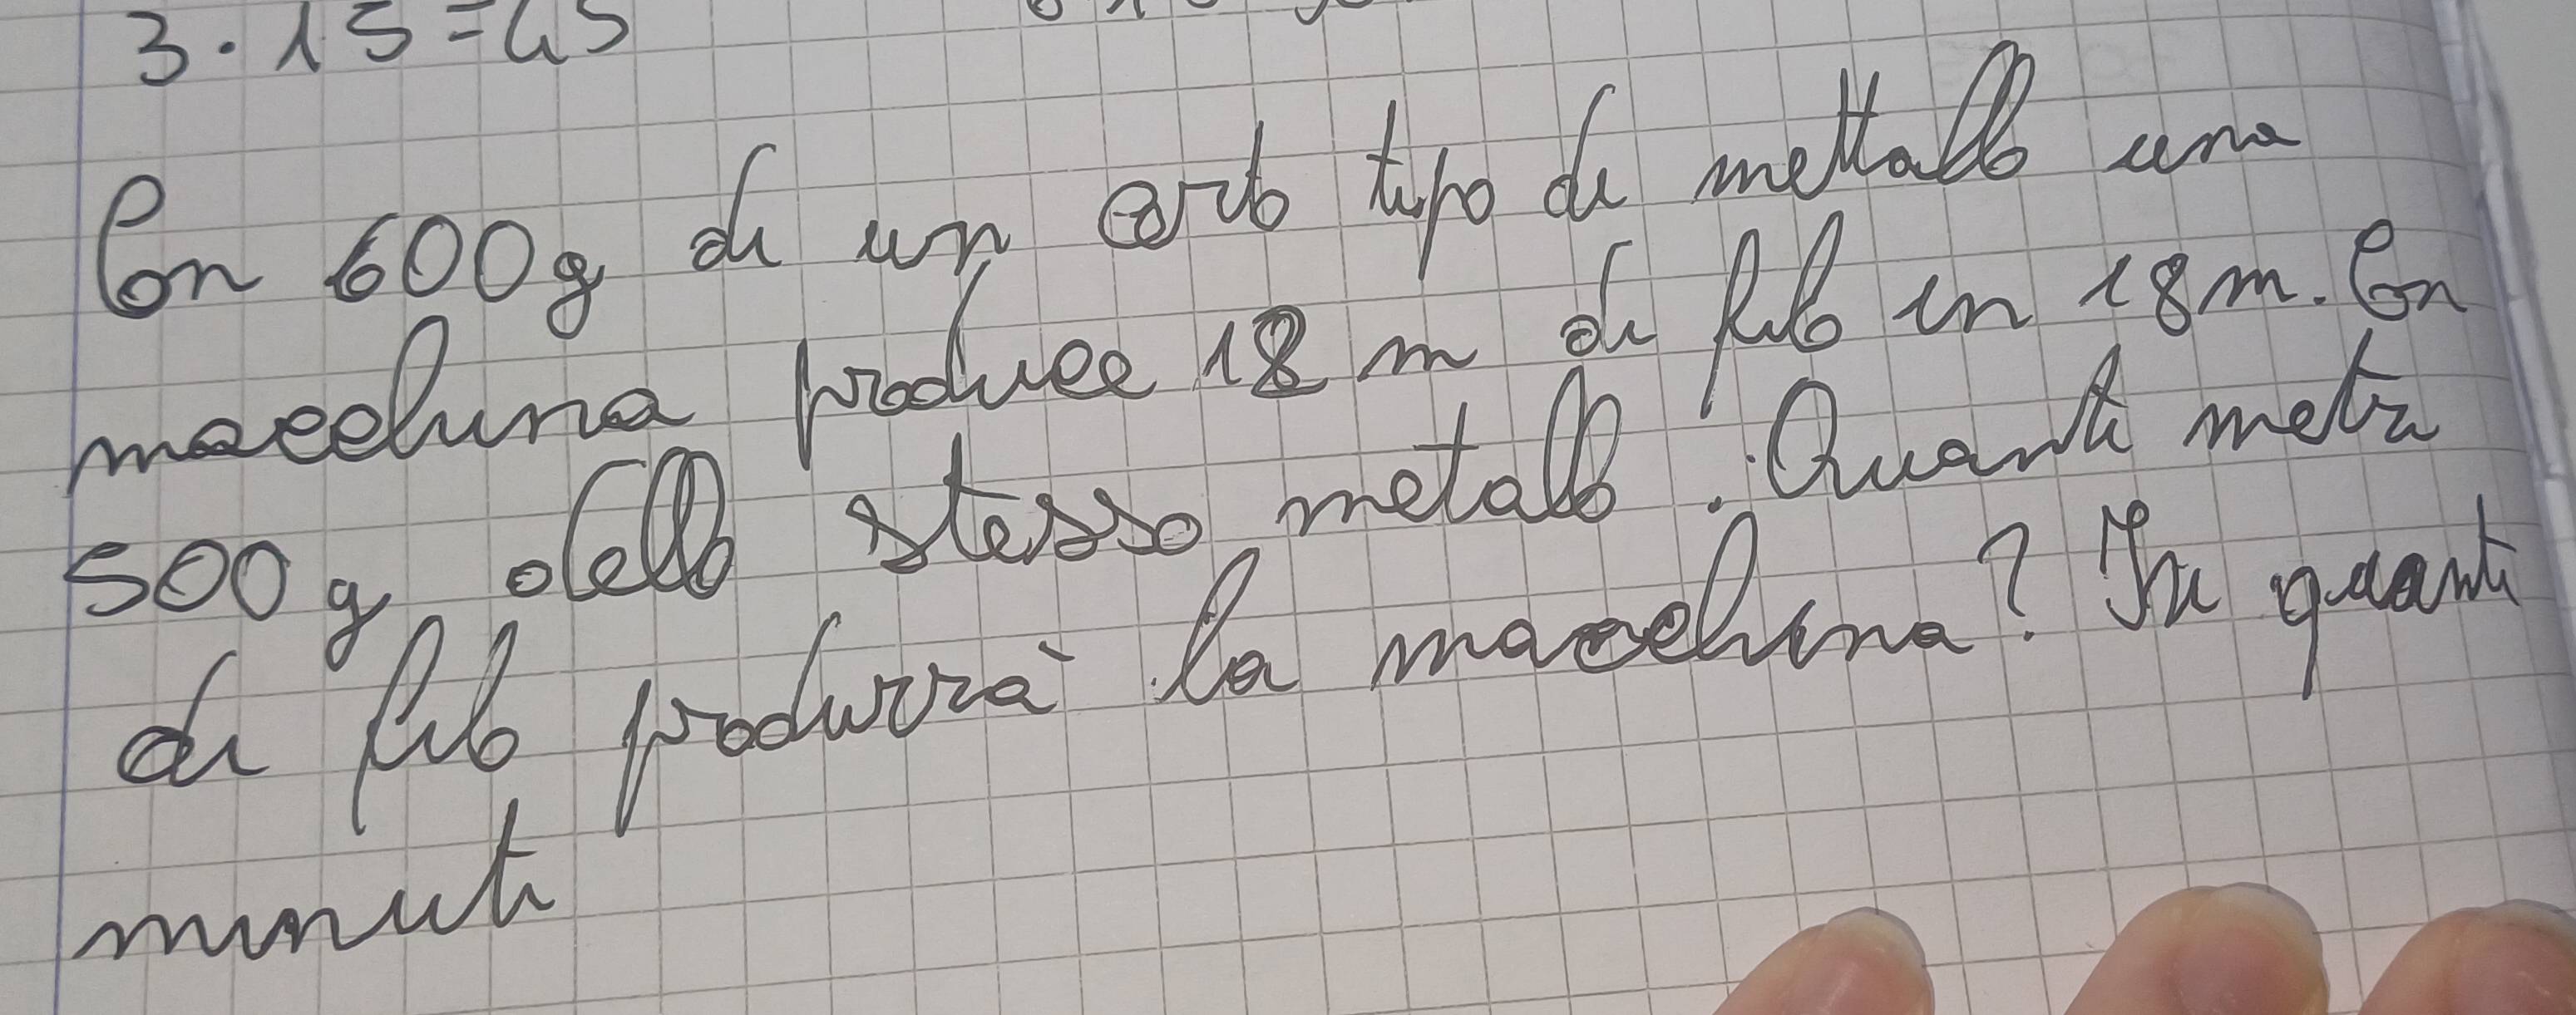 3 · 15 = 45
Con 600g di un certo tipo di mettallo una
macchina produce 18 m di filo in 18m. Con
500g dello stesso metallo. Quanti metri
di filo produrrà la macchina? In quanti
minuti